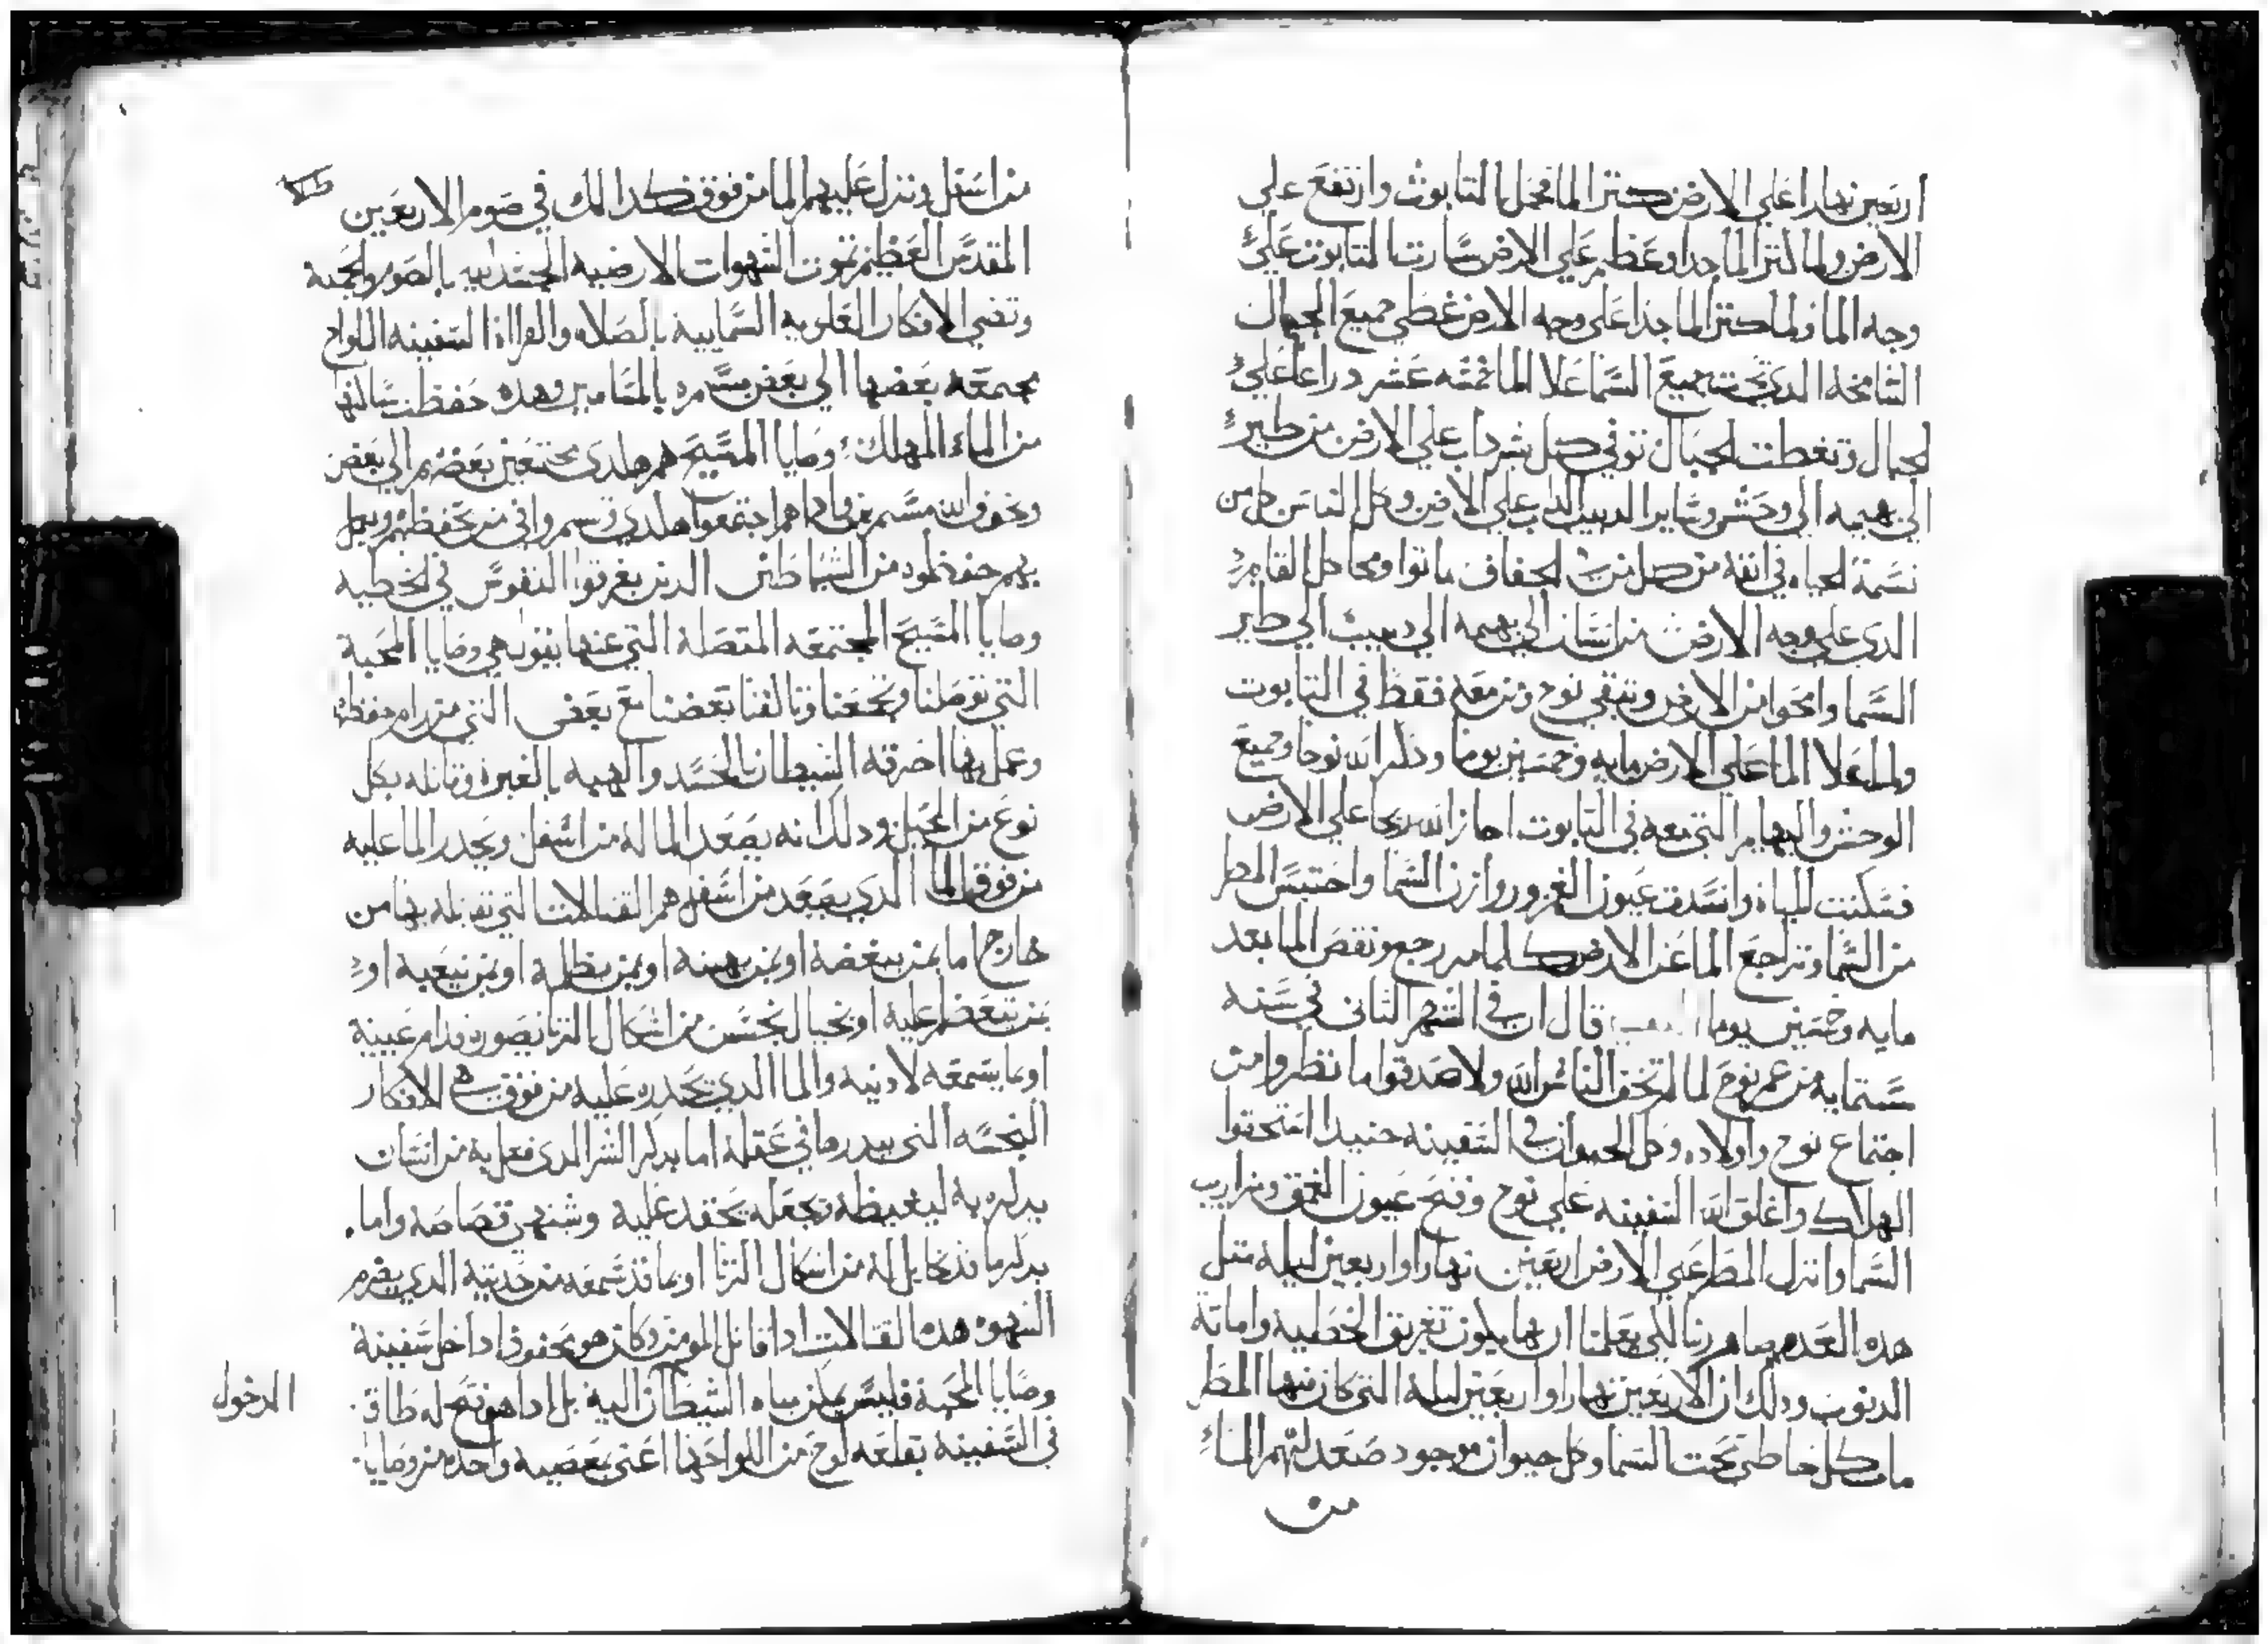 اربعين نهارا علي الارض كثر الما فحمل التابوت وارتفع علي
الارض ولما كثر الما جدا وعظم علي الارض سارت التابوت علي
وجه الما ولما كثر الما جدا علي وجه الارض غطي جميع الجبال
الشامخه الدي تحت جميع السما علا الما خمسه عشر دراعا علي
الجبال وتغطت الجبال توفي كل بشر داب علي الارض من طير
الي بهيمه الي وحش وساير الدبيب الداب علي الارض وكل الناس كل من
نسمة الحياه في انفه من كل من الجفاف ماتوا ومحا كل القايم
الدي علي وجه الارض من انسان الي بهيمه الي دبيب الي طير
السما وامحوا من الارض وتبقي نوح ومن معه فقط في التابوت
ولما علا الما علي الارض مايه وخمسين يوما ودكر الله نوحا وجميع
الوحش والبهايم التي معه في التابوت اجاز الله ريحا علي الارض
فسكنت المياه وانسدت عيون الغمر وروازن السما واحتبس المطر
من السما وتراجع الما عن الارض كلما مر رجع ونقص الما بعد
مايه وخمسين يوما قال ان في الشهر التاني في سنه
ستمايه من عمر نوح لما لم تخف الناس الله ولا صدقوا ما نظروا من
اجتماع نوح واولاده وكل الحيوان في السفينه حينيد استحقوا
الهلاك واغلق الله السفينه علي نوح وفتح عيون الغمق وميازيب
السما وانزل المطر علي الارض اربعين نهارا واربعين ليله متل
هده العده صام ربنا لكي يعلمنا ان بها يكون تغريق الخطيه واماتة
الدنوب ودلك ان الاربعين نهارا واربعين ليلة التي كان فيها المطر
مات كل خاطي تحت السما وكل حيوان موجود صعد لهم الما
من
من اسفل ونزل عليهم الما من فوق فكدالك في صوم الاربعين
المقدس العظيم تموت الشهوات الارضيه الجسدانيه بالصوم والمحبة
وتضي الافكار العلويه السماييه بالصلاه والقراة السفينه اللواح
مجمتعه بعضها الي بعض مسمره بالمسامير وهده حفظت سالنها
من الماء المهلك وصايا المسيح هم هكدي مجتمعين بعضهم الي بعض
وبخوف الله مسمرين فاداهم اجتمعوا هكدي وتسمروا في من يحفظهم ويعمل
بهم حفظوه من الشياطين الدين يغرقوا النفوس في الخطيه
وصايا المسيح المجتمعه المتصلة التي عنها نقول هي وصايا المحبة
التي توصلنا وتجمعنا وتالفنا بعضنا مع بعض التي من رام حفظها
وعمل بها احرقه الشيطان بالحسد والهبه بالغيره وقاتله بكل
نوع من الحيل ودلك انه يصعد الما له من اسفل ويحدر الما عليه
من فوق الما الدي يصعد من اسفل هم القتالات التي تقاتله بها من
خارج اما بمن يبغضه او بمن يهينه او بمن يظلمه او بمن يتعبه او
بمن يتعظم عليه او بخيال نجس من اشكال الزنا يصوره قدام عينيه
او بما يسمعه لادنيه والما الدي يحدره عليه من فوق هي الافكار
النجسه التي يبدرها في عقله اما بدكر الشر الدي فعل به من انسان
يدكره به ليغيظه ويجعله يحقد عليه ويشتهي قصاصه واما
بدكر ما قد خايل له من اشكال الزنا او بما قد سمعه من حديته الدي يضرم
الشهوه هده القتالات ادا قاتل المومن وكان هو محفوظا داخل سفينة
وصايا المحبة فليس يمكن مياه الشيطان اليه بل ادا هو فتح له طاقه
في السفينه بقلعه لوح من اللواحها اعني بعصيه واحده من وصايا
الدخول